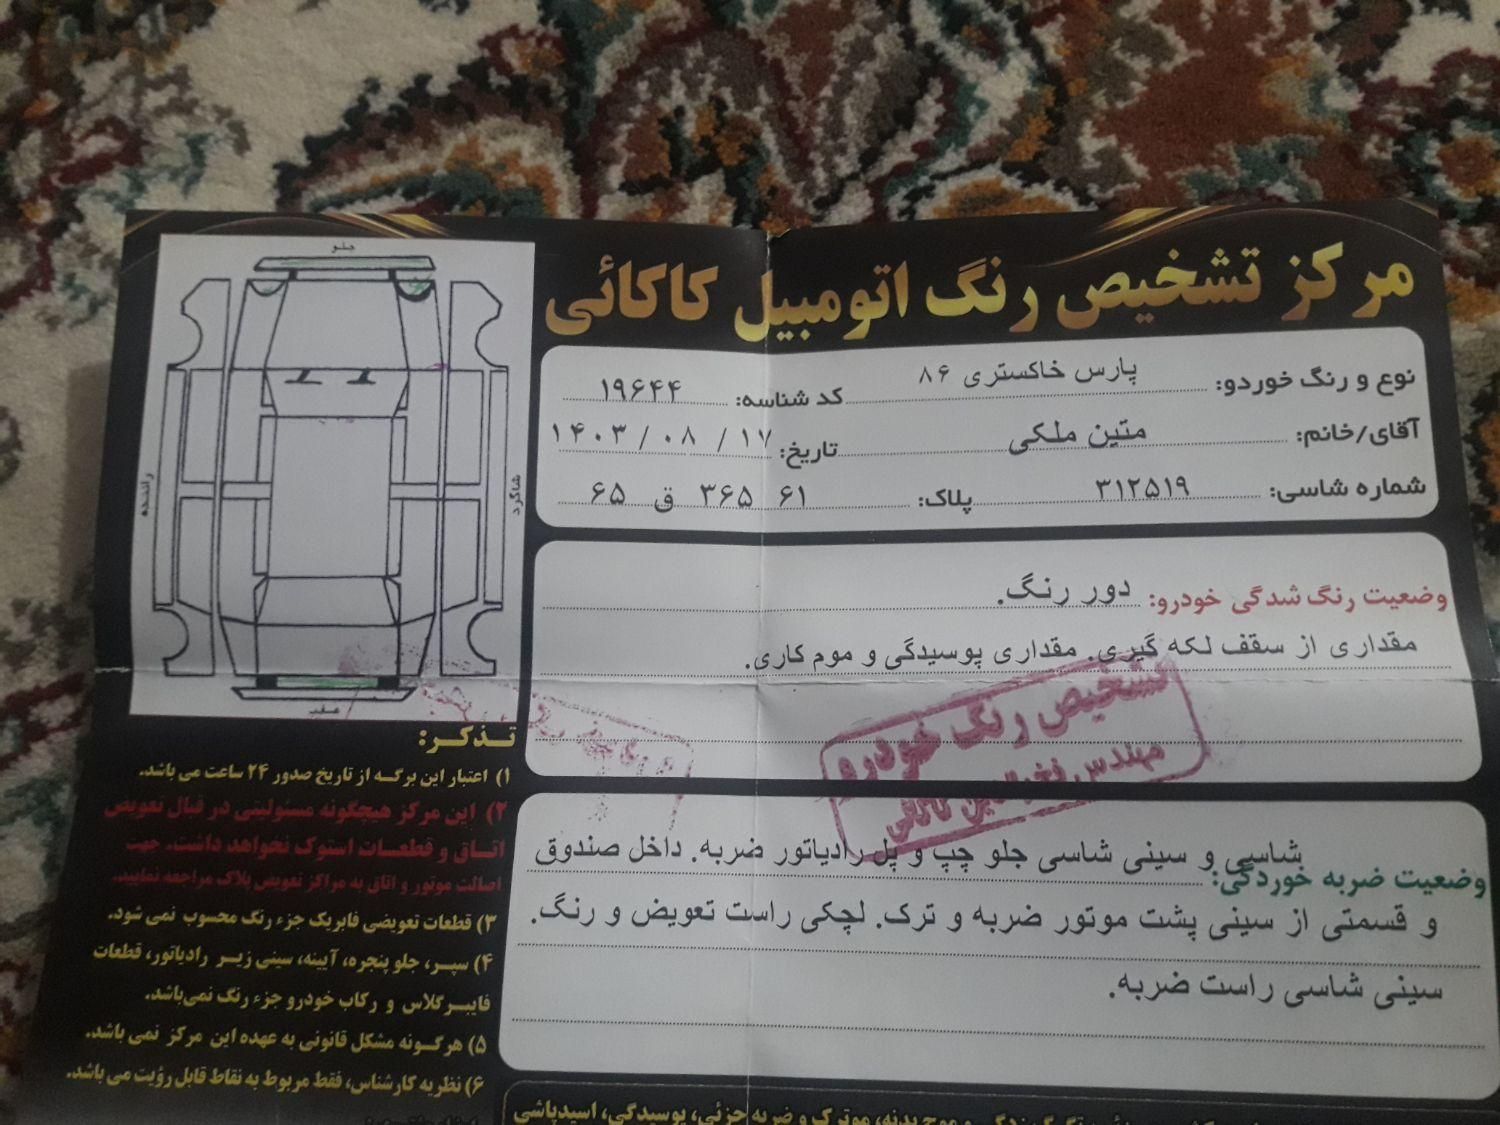 مرکز تشخیص رنگ اتومبیل کاکائی
نوع و رنگ خوردو: پارس خاکستری ۸۶ کد شناسه: ۱۹۶۴۴
آقای/خانم: متین ملکی تاریخ: ۱۷ / ۰۸ / ۱۴۰۳
شماره شاسی: ۳۱۲۵۱۹ پلاک: ۶۱ ۳۶۵ ق ۶۵
وضعیت رنگ شدگی خودرو: دور رنگ.
مقداری از سقف لکه گیری. مقداری پوسیدگی و موم کاری.
تشخیص رنگ خودرو
مهندس
کاکائی
وضعیت ضربه خوردگی: شاسی و سینی شاسی جلو چپ و پل رادیاتور ضربه. داخل صندوق
و قسمتی از سینی پشت موتور ضربه و ترک. لچکی راست تعویض و رنگ.
سینی شاسی راست ضربه.
جلو
راننده
شاگرد
عقب
تذکر:
۱) اعتبار این برگه از تاریخ صدور ۲۴ ساعت می باشد.
۲) این مرکز هیچگونه مسئولیتی در قبال تعویض
اتاق و قطعات استوک نخواهد داشت. جهت
اصالت موتور و اتاق به مراکز تعویض پلاک مراجعه نمایید.
۳) قطعات تعویضی فابریک جزء رنگ محسوب نمی شود.
۴) سپر، جلو پنجره، آیینه، سینی زیر رادیاتور، قطعات
فایبرگلاس و رکاب خودرو جزء رنگ نمی‌باشد.
۵) هرگونه مشکل قانونی به عهده این مرکز نمی باشد.
۶) نظریه کارشناس، فقط مربوط به نقاط قابل رؤیت می باشد.
موج بدنه، موترک و ضربه جزئی، پوسیدگی، اسیدپاشی